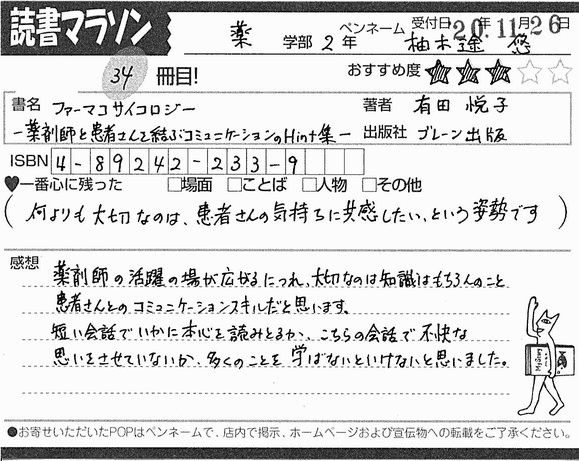 読書マラソン
薬 学部 2 年
ペンネーム 柚木 悠
受付日 20年11月26日
34 冊目!
おすすめ度 ★★★☆☆
書名 ファーマコサイコロジー
著者 有田 悦子
-薬剤師と患者さんを結ぶコミュニケーションのHint集-
出版社 ブレーン出版
ISBN 4-89242-233-9
♥一番心に残った □場面 □ことば □人物 □その他
(何よりも大切なのは、患者さんの気持ちに共感したい、という姿勢です)
感想
薬剤師の活躍の場が広がるにつれ、大切なのは知識はもちろんのこと
患者さんとのコミュニケーションスキルだと思います。
短い会話でいかに本心を読みとるか、こちらの会話で不快な
思いをさせていないか、多くのことを学ばないといけないと思いました。
●お寄せいただいたPOPはペンネームで、店内で掲示、ホームページおよび宣伝物への転載をご了承ください。